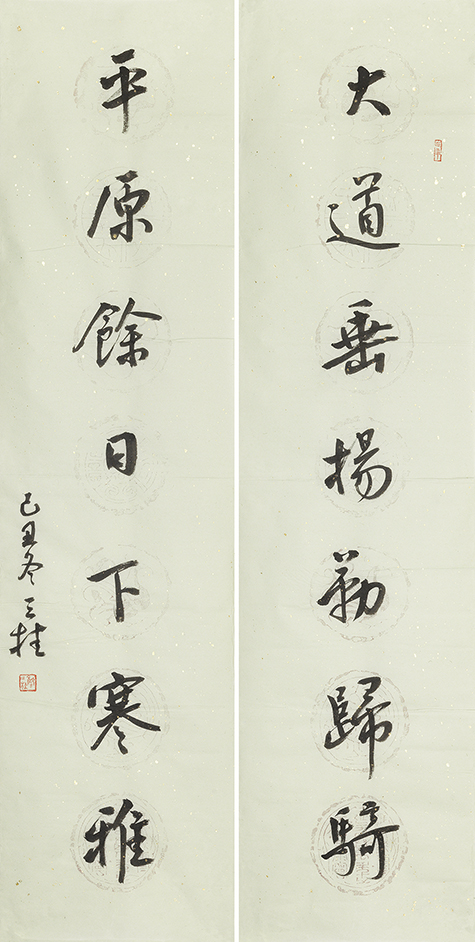 大道垂揚勒歸騎
平原餘日下寒雅
己丑冬三柱